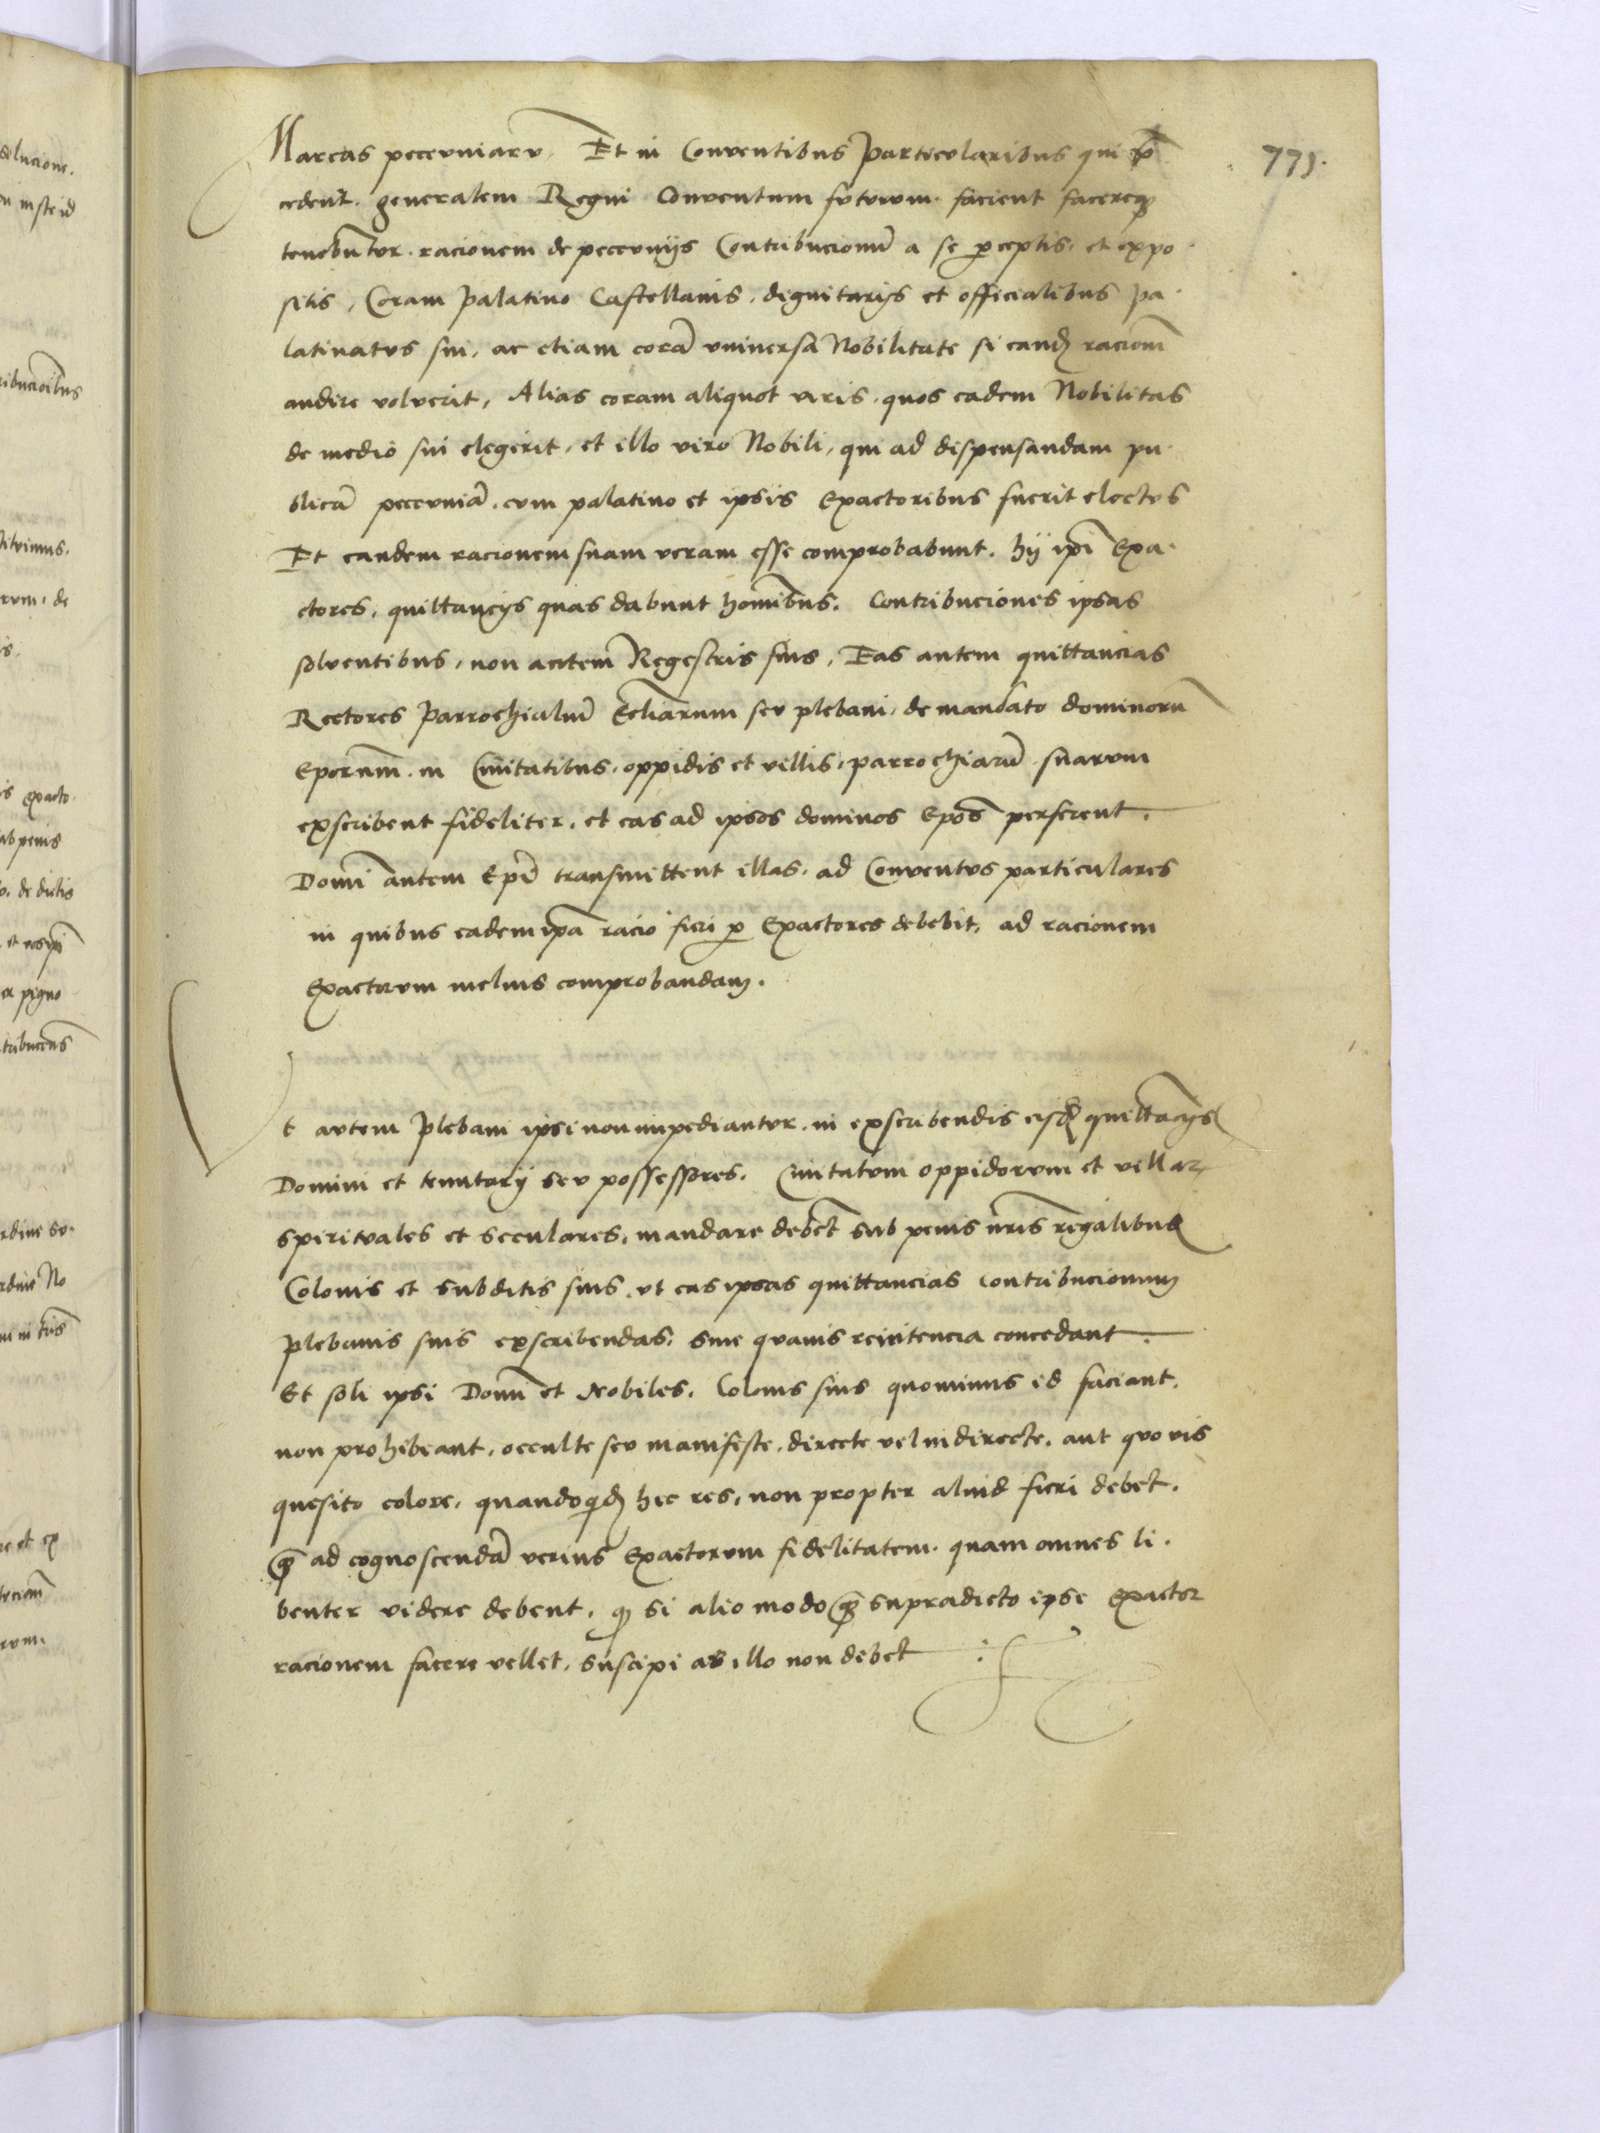 Marcas pecuniarũ, Et in Conventibus Particularibus qui p̃ 771.
cedent generalem Regni Conventum futurum. facient facereqꝫ
tenebunt̃ur. racionem de pecunijs Contribucionũ a se ꝑceptis, et expo
sitis, Coram palatino Castellanis, dignitarijs et officialibus pa.
latinatus sui, ac etiam corã vniversa Nobilitate si eandꝫ racionẽ
audire voluerit, Alias coram aliquot viris, quos eadem Nobilitas
de medio sui elegerit, et illo viro Nobili, qui ad dispensandam pu.
blicã pecuniã, cum palatino et ipsis Exactoribus fuerit electus
Et eandem racionem suam veram esse comprobabunt. hij ip̃i Exa.
ctores, quittancijs quas dabunt hom̃ibus. Contribuciones ipsas
solventibus, non autem Regestris suis, Eas autem quittancias
Rectores Parrochialiũ Eccl̃iarum seu plebani, de mandato dominorũ
Ep̃orum. in Civitatibus, oppidis et villis, parrochiarũ suarum
exscribent fideliter, et eas ad ipsos dominos Ep̃os perferent.
Domĩ autem Ep̃i transmittent illas, ad Conventus particulares
in quibus eadem ip̃a racio fieri ꝑ Exactores debebit, ad racionem
Exactorum melius comprobandam.
Vt autem Plebani ipsi non impediantur. in exscribendis eisdꝫ quittãcijs
Domini et tenutarij seu possessores. Civitatum oppidorum et villarꝫ
spirituales et seculares, mandare debẽt sub penis nr̃is regalibus
Colonis et subditis suis, vt eas ipsas quittancias Contribucionum
Plebanis suis exscribendas, sine quavis renitencia concedant.
Et soli ipsi Domĩ et Nobiles, Colonis suis quominus id faciant,
non prohibeant, occulte seu manifeste, directe vel indirecte, aut quovis
quesito colore, quandoqdꝫ hec res, non propter aliud fieri debet,
q̃ ad cognoscendã verius Exactorum fidelitatem. quam omnes li.
benter videre debent, qꝫ si alio modo q̃ supradicto ipse Exactor
racionem facere vellet, suscipi ab illo non debet